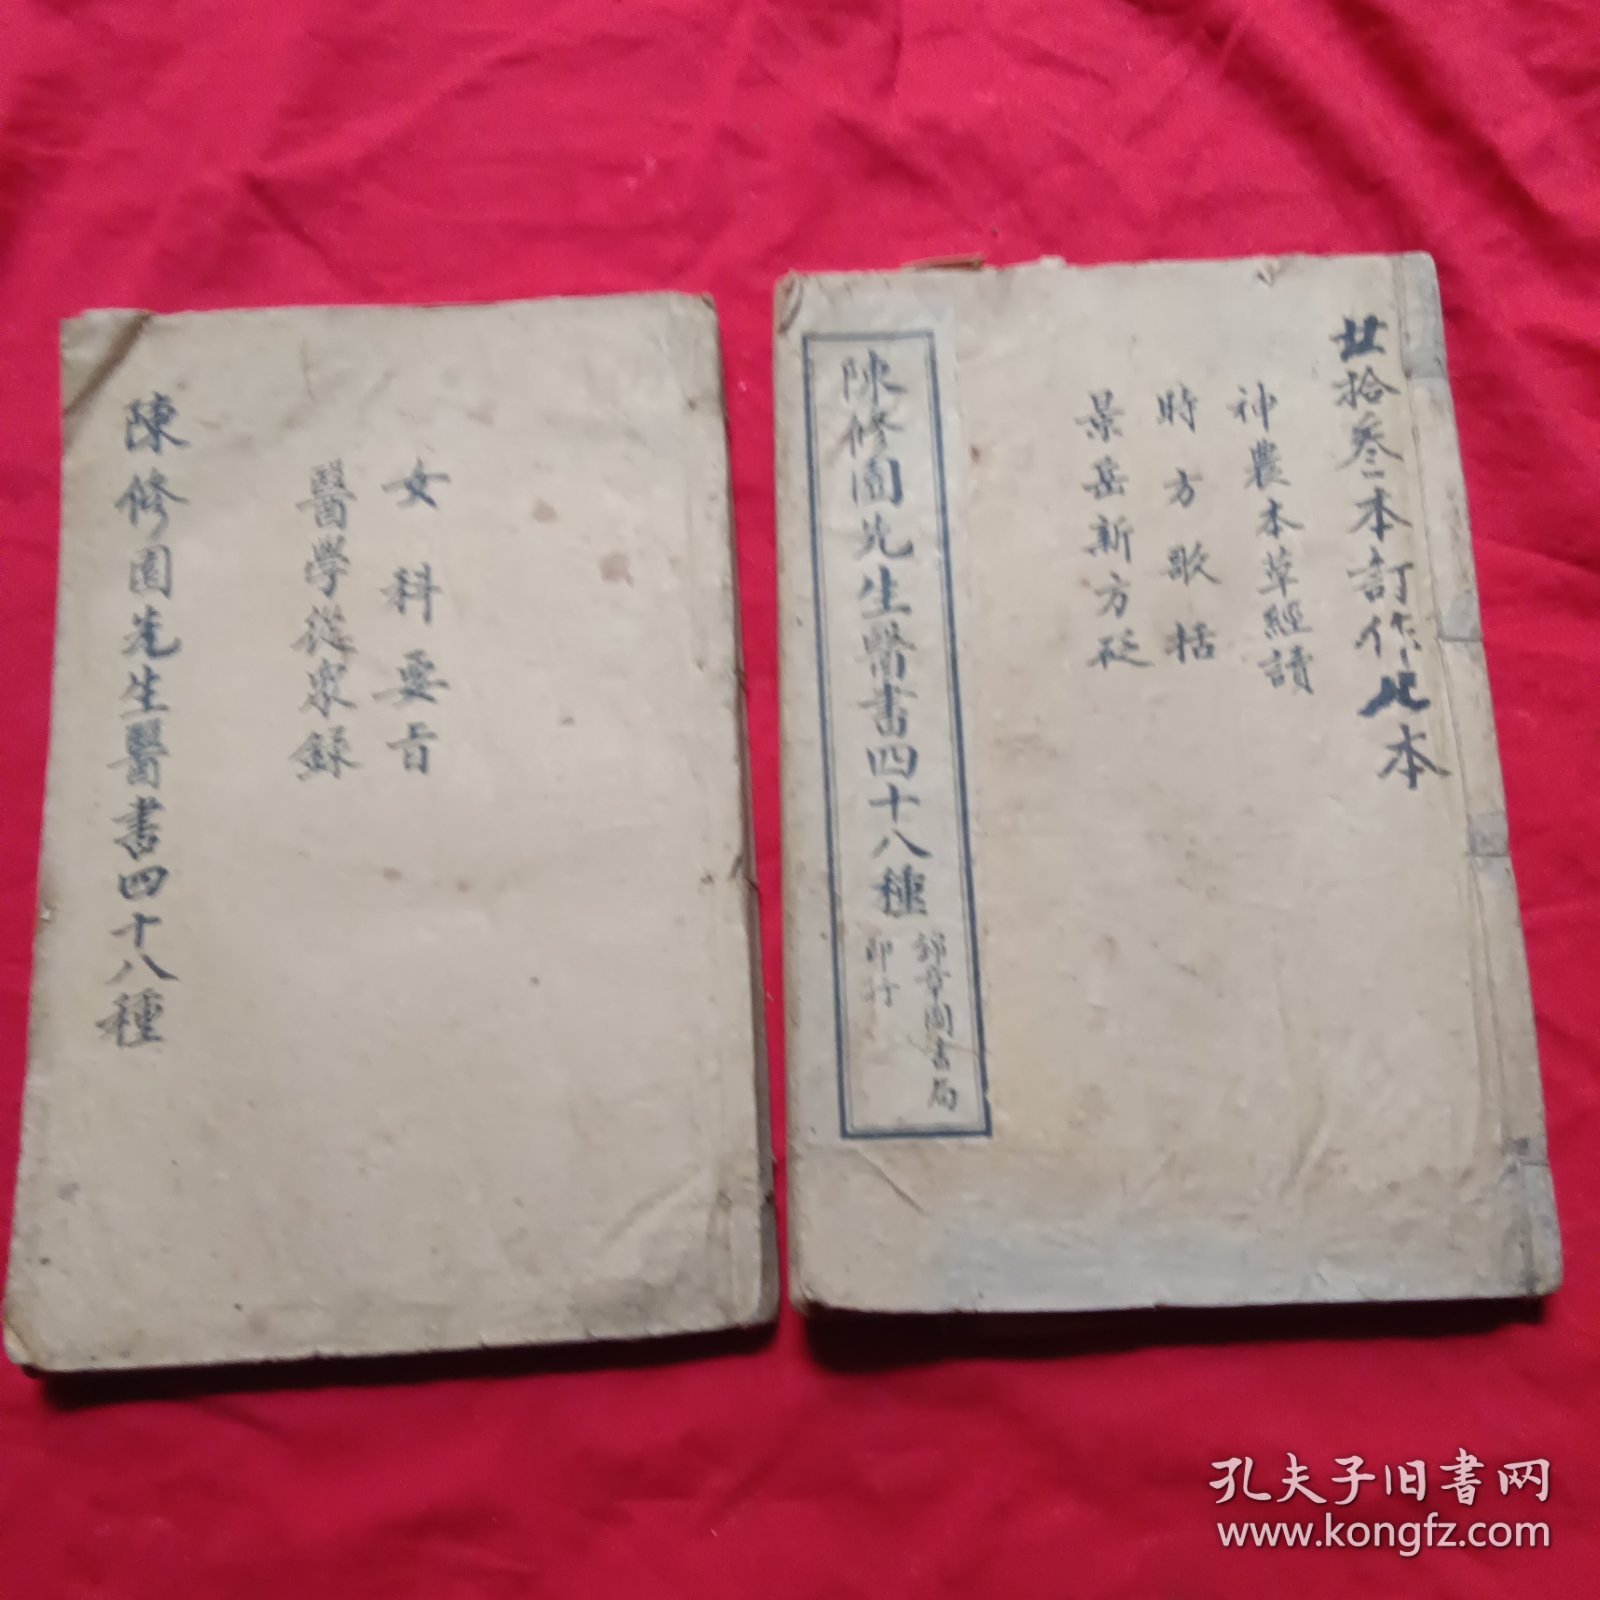 女科要旨
醫學從眾錄
陳修園先生醫書四十八種
廿拾叁本訂作此本
神農本草經讀
時方歌括
景岳新方砭
陳修園先生醫書四十八種
錦章圖書局
印行
孔夫子旧書网
www.kongfz.com